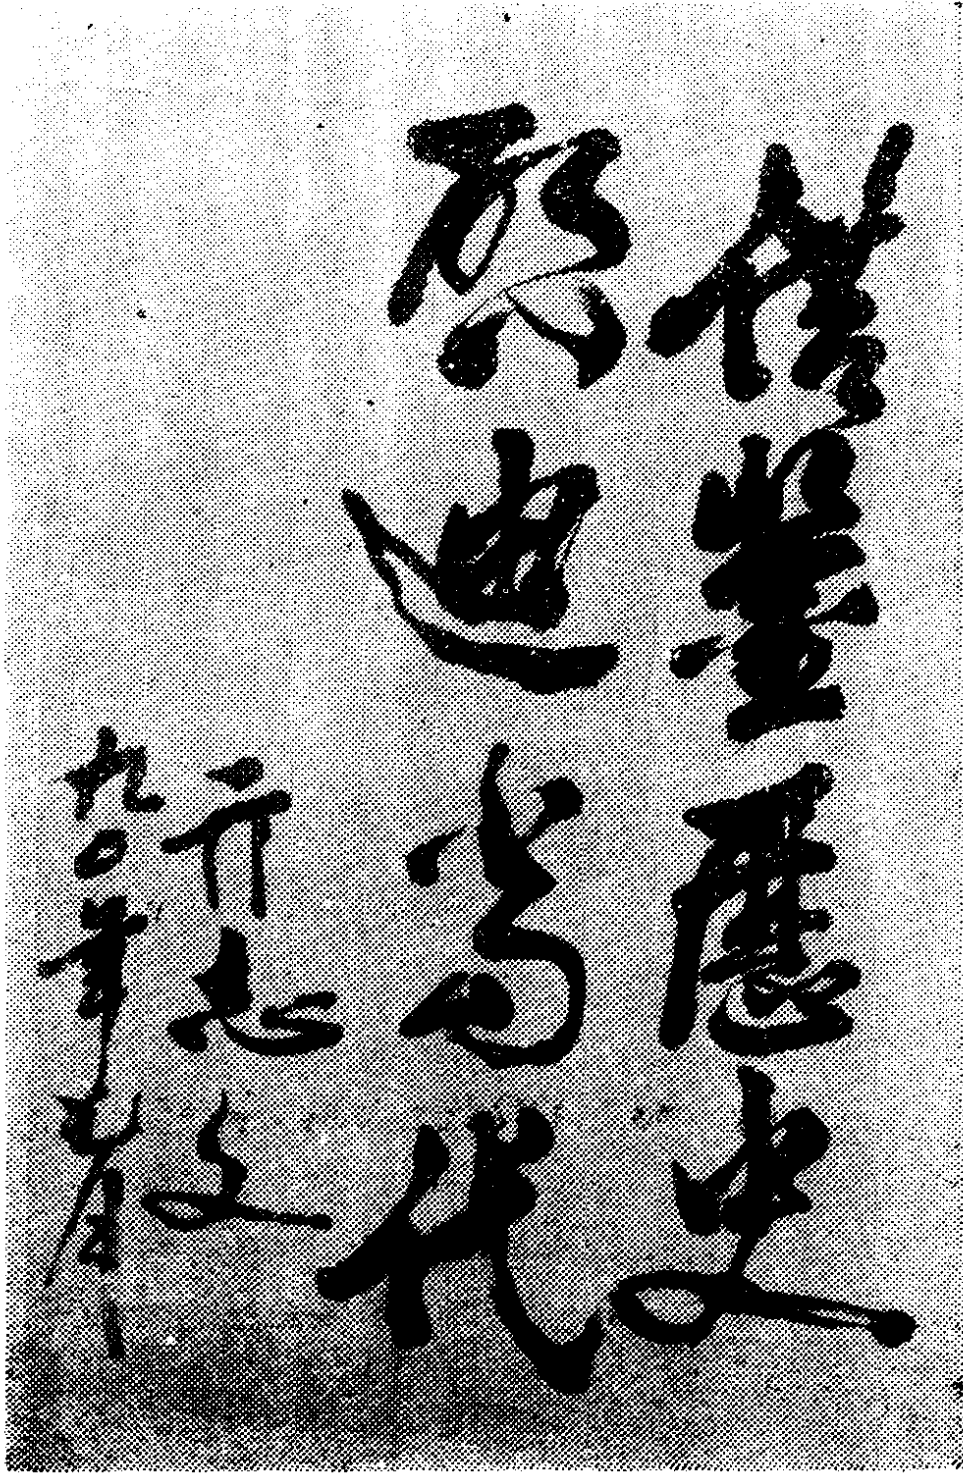 借鉴歷史
启迪当代
亓志文
九〇年